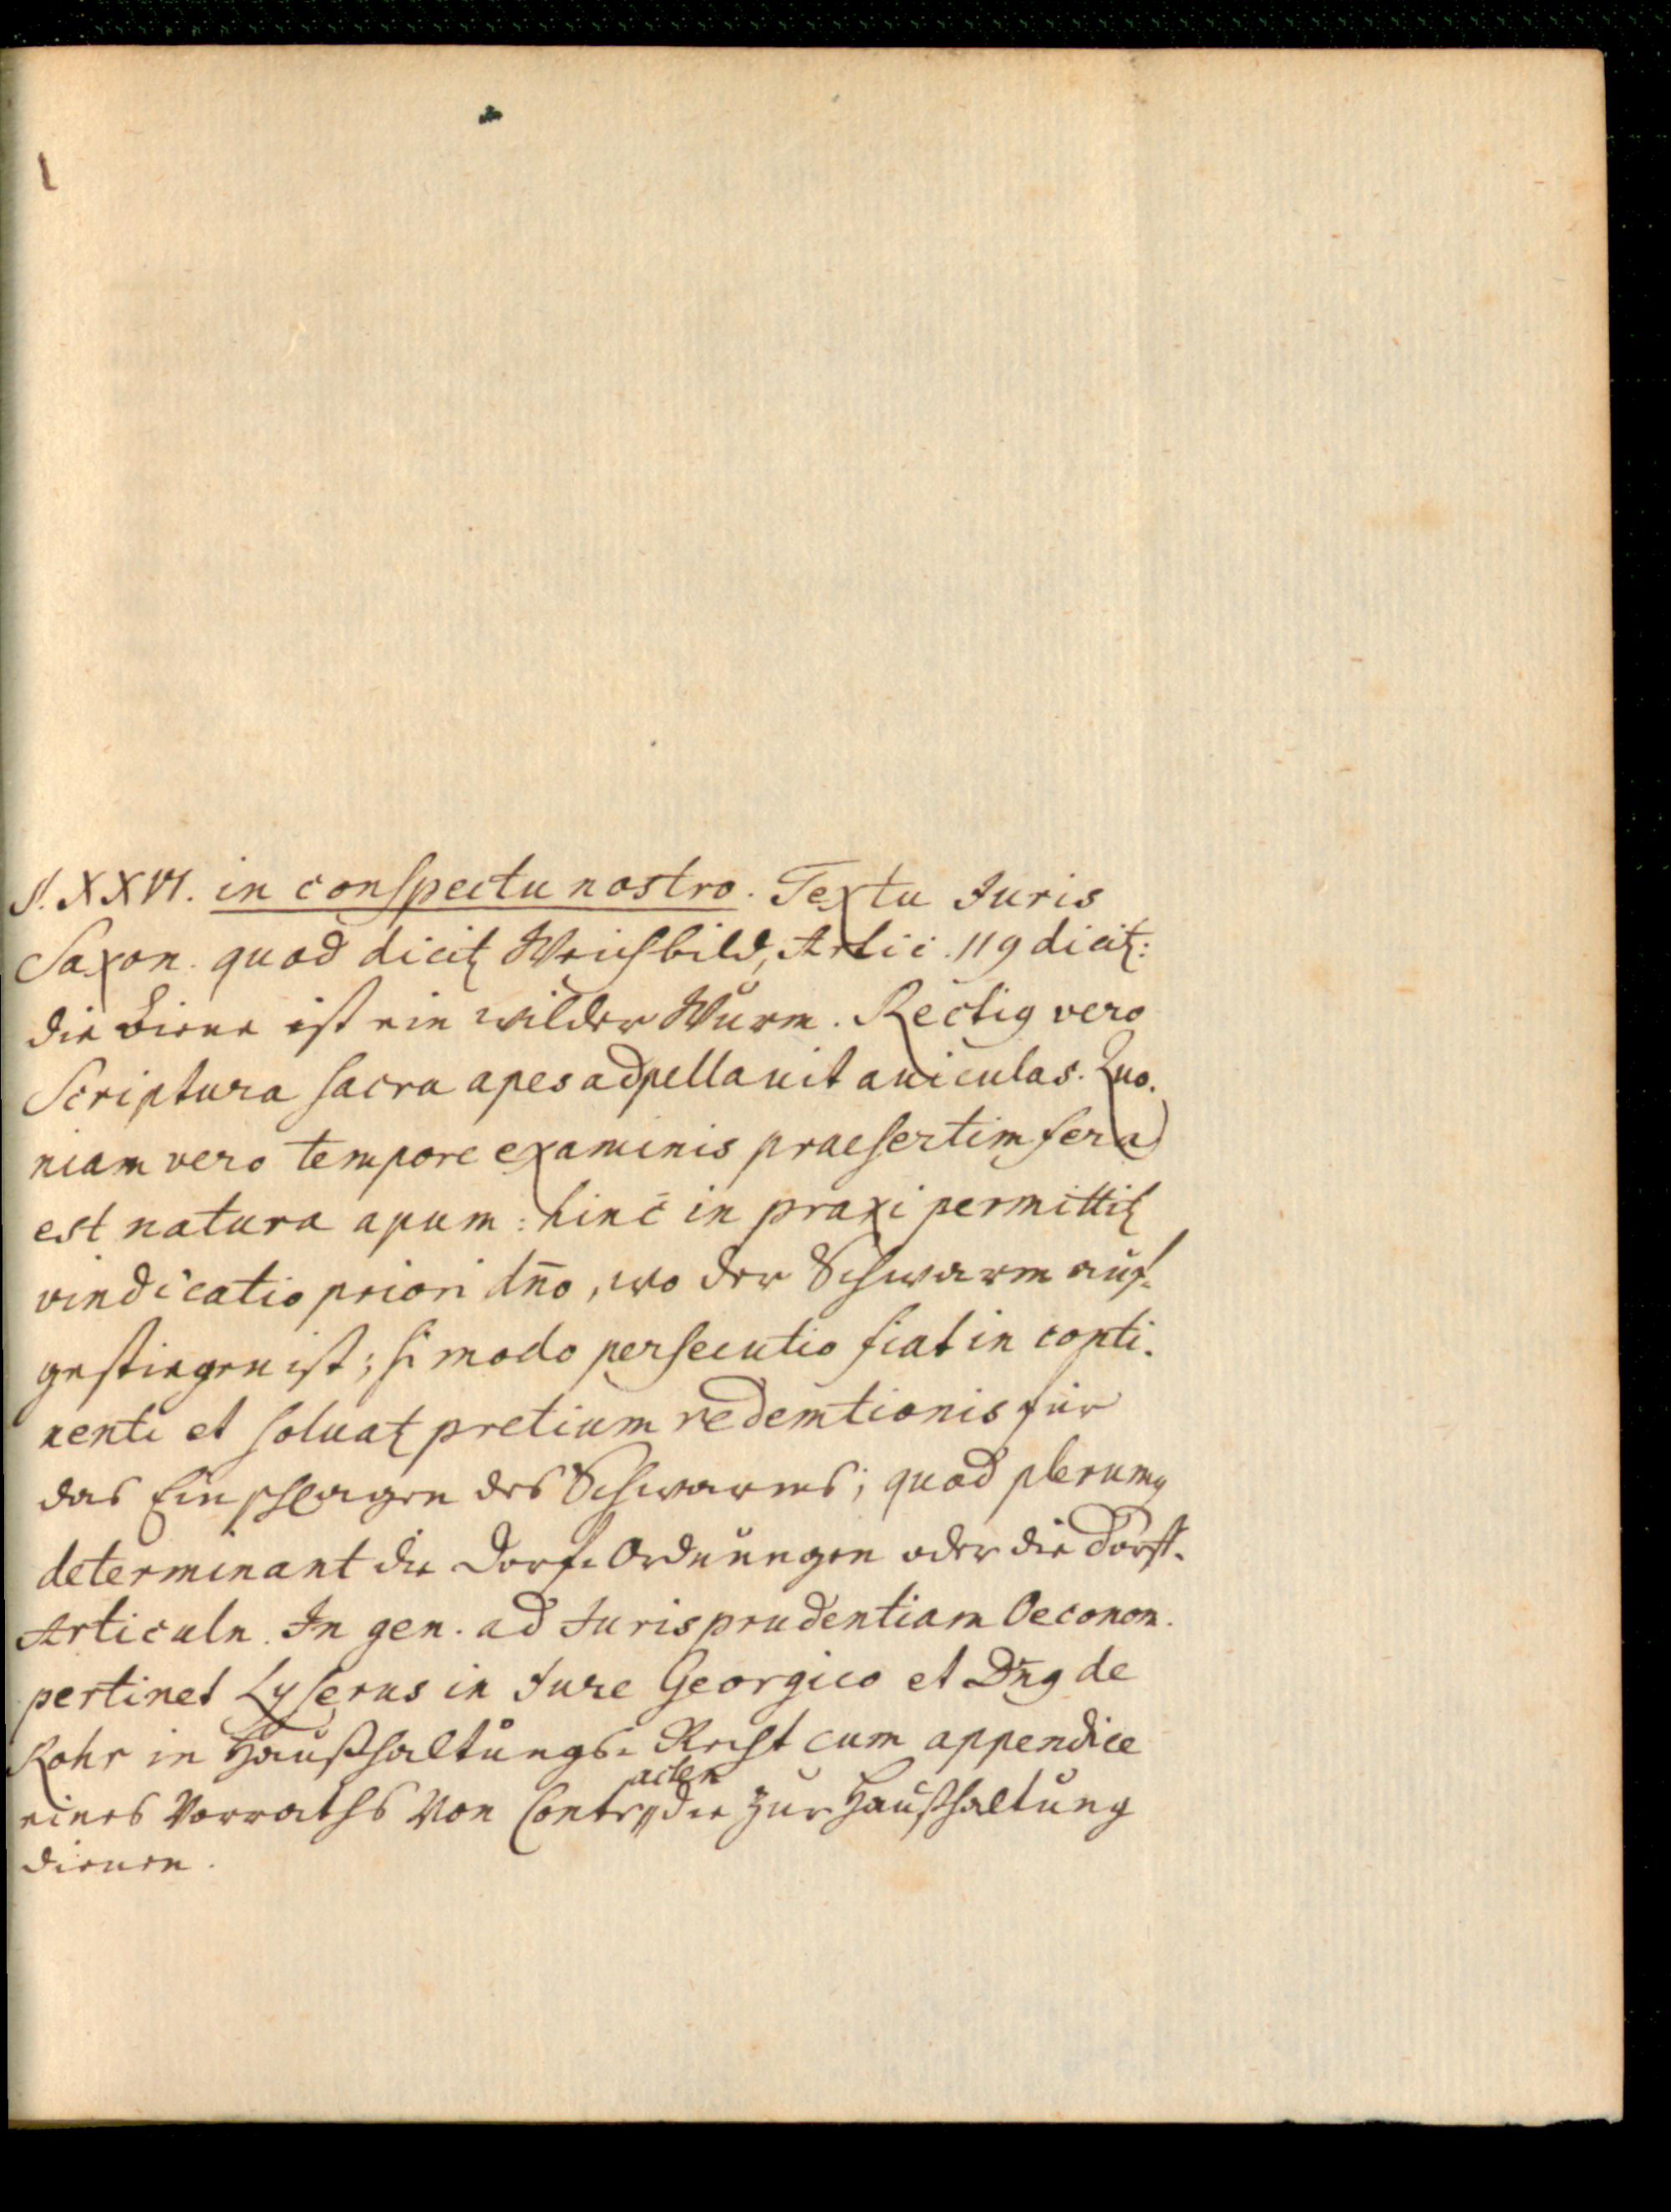 §. XXVI. in conspectu nostro. Textu Juris
Saxon. quod dicitꝛ Weichbild, Artic. 119 dicitꝛ:
die Biene ist ein wilder Wurm. Rectig vero
Scriptura sacra apes adpellauit auiculas. Quo-
niam vero tempore examinis praesertim fera
est natura apum: hinc in praxi permittitꝛ
vindicatio priori dn̄o, wo der Schwarm auf-
gestiegen ist; si modo persecutio fiat in conti-
nenti et soluatꝛ pretium redemtionis für
das Einschlagen des Schwarms; quod plerumq
determinant die Dorf-Ordnungen oder die Dorff-
Articuln. In gen. ad Jurisprudentiam Oeconom.
pertinet Lyserus in Jure Georgico et Dn̄g de
Rohr in Haußhaltungs-Recht cum appendice
eines Vorraths von Contracten die zur Haußhaltung
dienen.